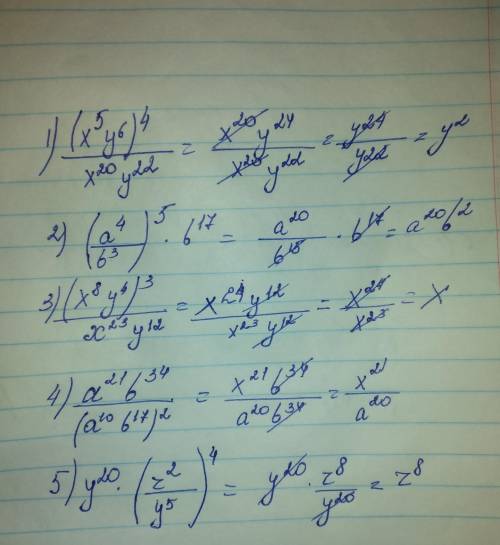 1) (x⁵y⁶)⁴ / x²⁰y²² = x²⁰y²⁴ / x²⁰y²² = y²⁴ / y²² = y²
2) (a⁴ / b³)⁵ · b¹⁷ = a²⁰ / b¹⁵ · b¹⁷ = a²⁰b²
3) (x⁸y⁴)³ / x²³y¹² = x²⁴y¹² / x²³y¹² = x²⁴ / x²³ = x
4) a²¹b³⁴ / (a¹⁰b¹⁷)² = x²¹b³⁴ / a²⁰b³⁴ = x²¹ / a²⁰
5) y²⁰ · (z² / y⁵)⁴ = y²⁰ · z⁸ / y²⁰ = z⁸